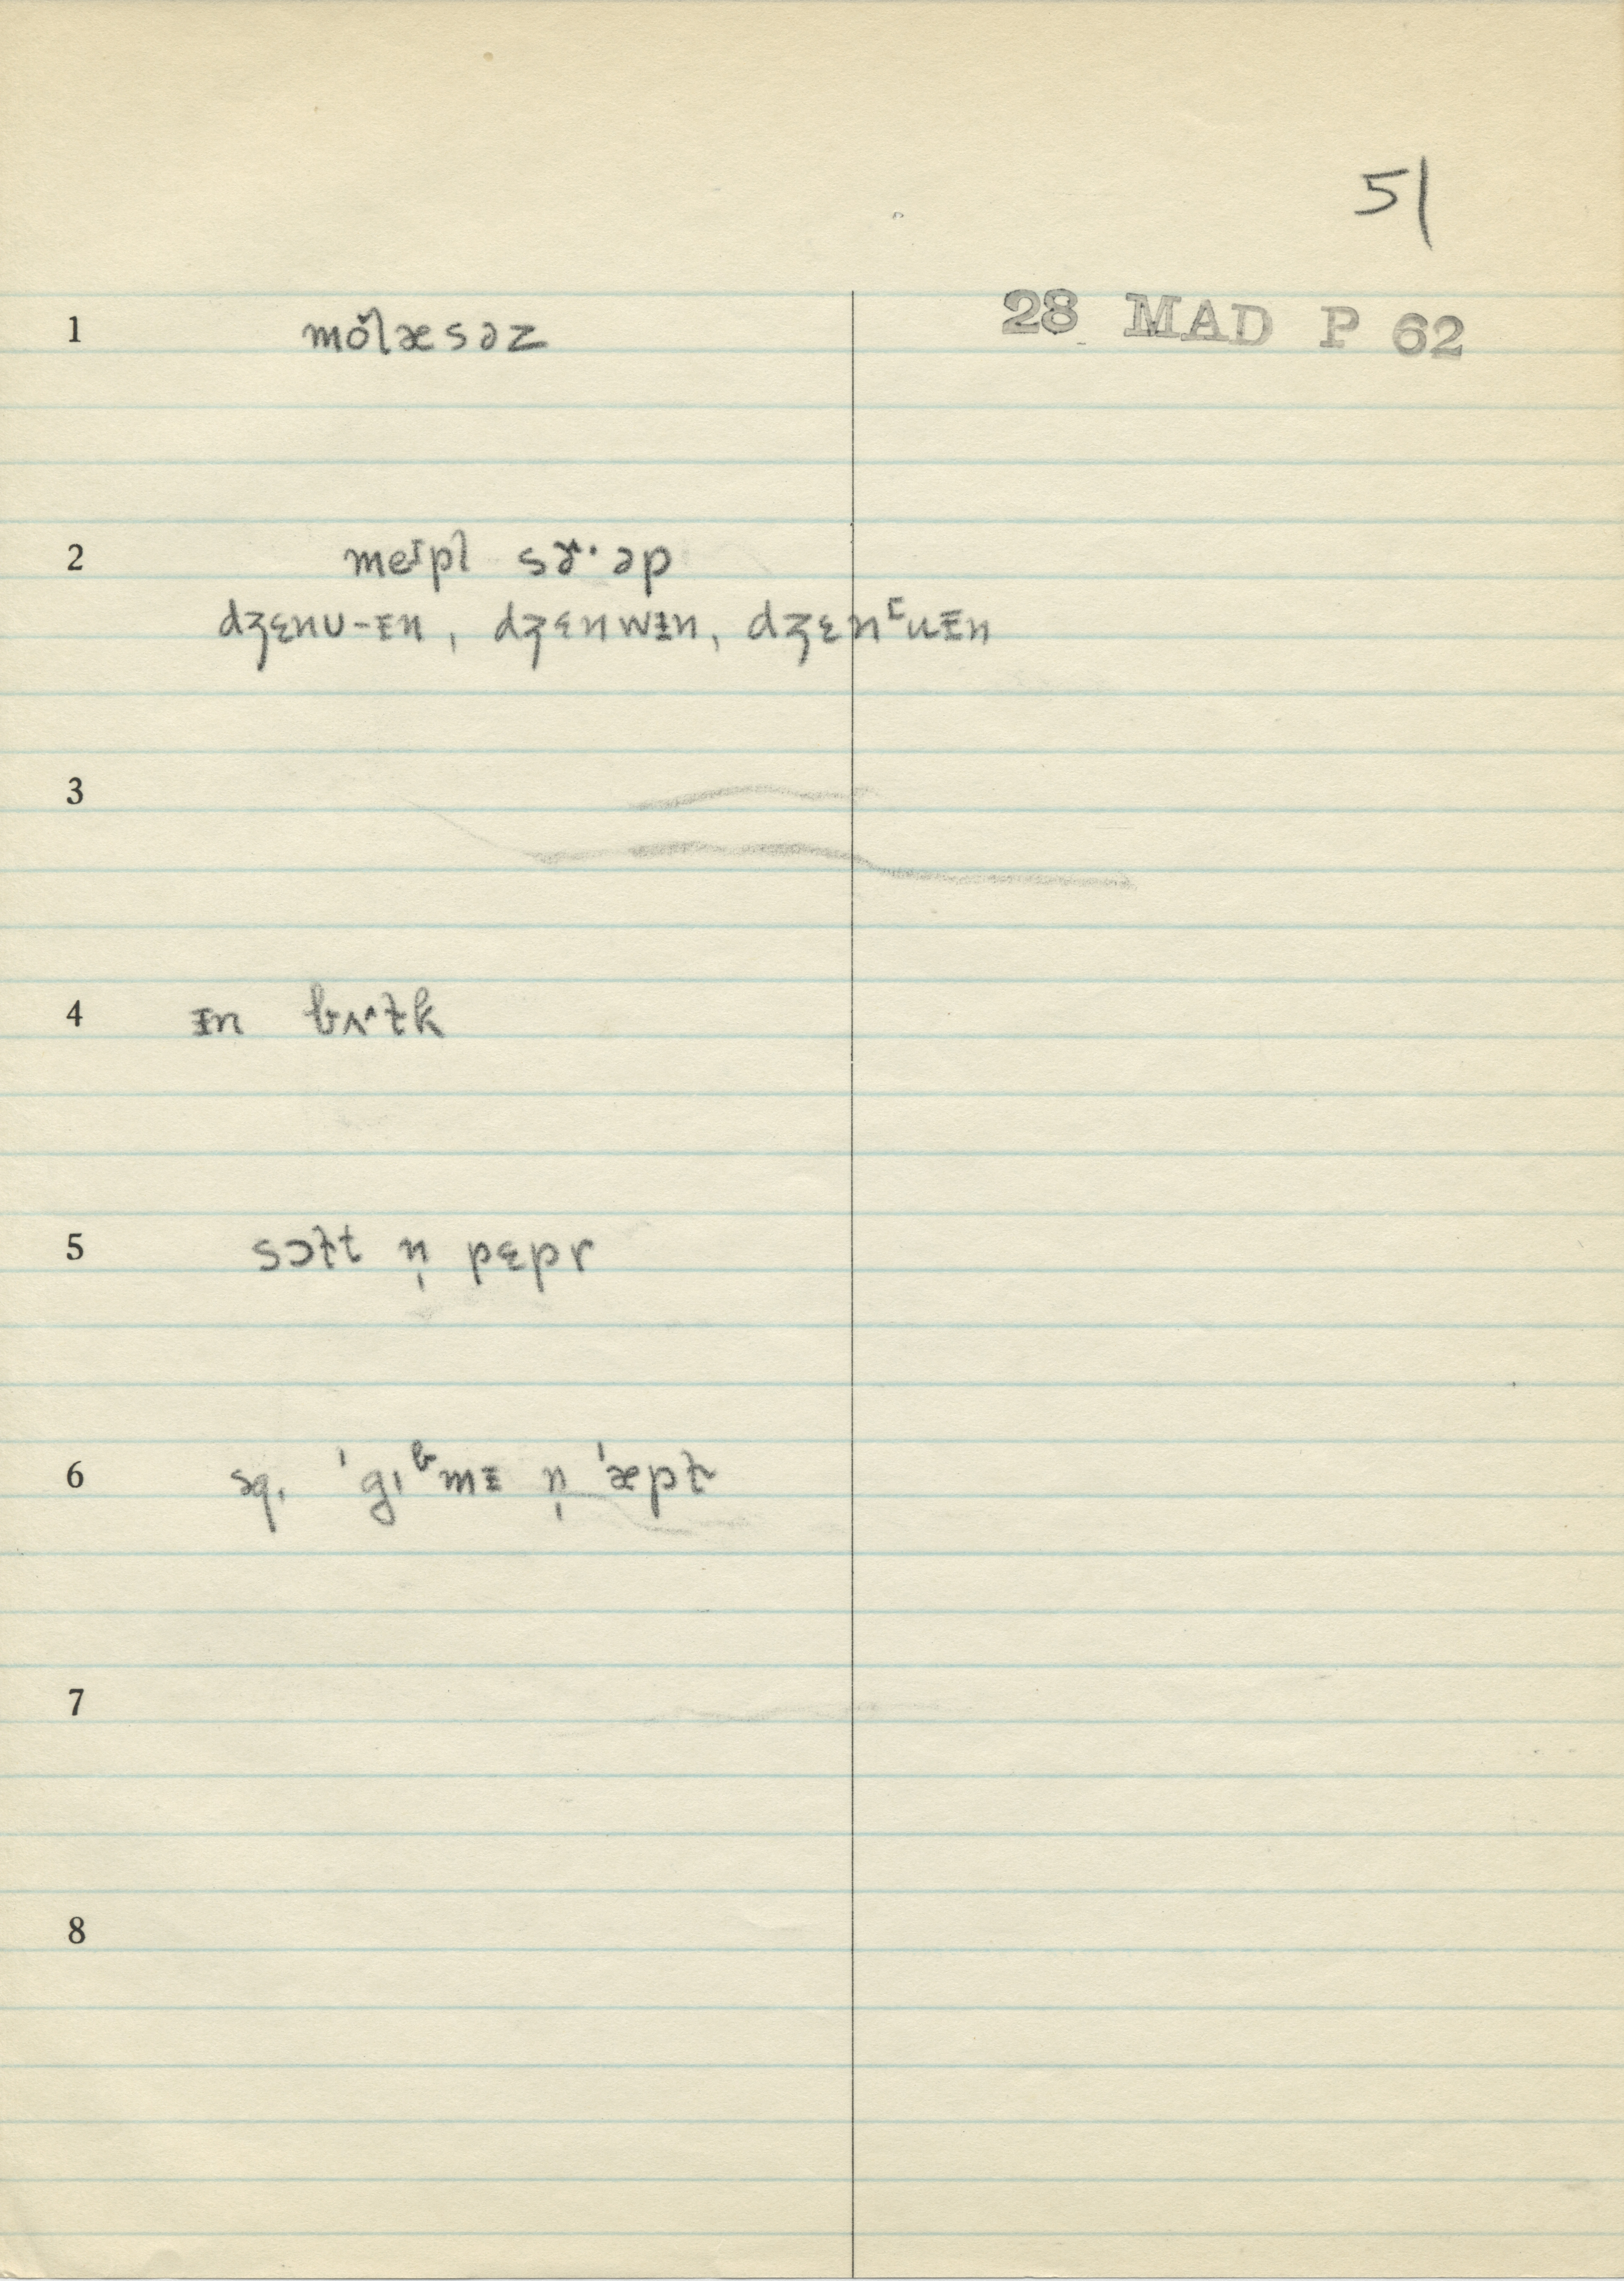 51
28 MAD P 62
1 mŏlæsəz
2 meɪpl sɤ˄·əp
dʒɛnʊ-ɪn, dʒɛnwᵻn, dʒɛnʳuɪn
3
4 ᵻn bʌ˄ɫk
5 sɔɫt n̩ pɛpr
6 sq. ˈgɪᵇmɪ n̩ ˈæpɫ
7
8